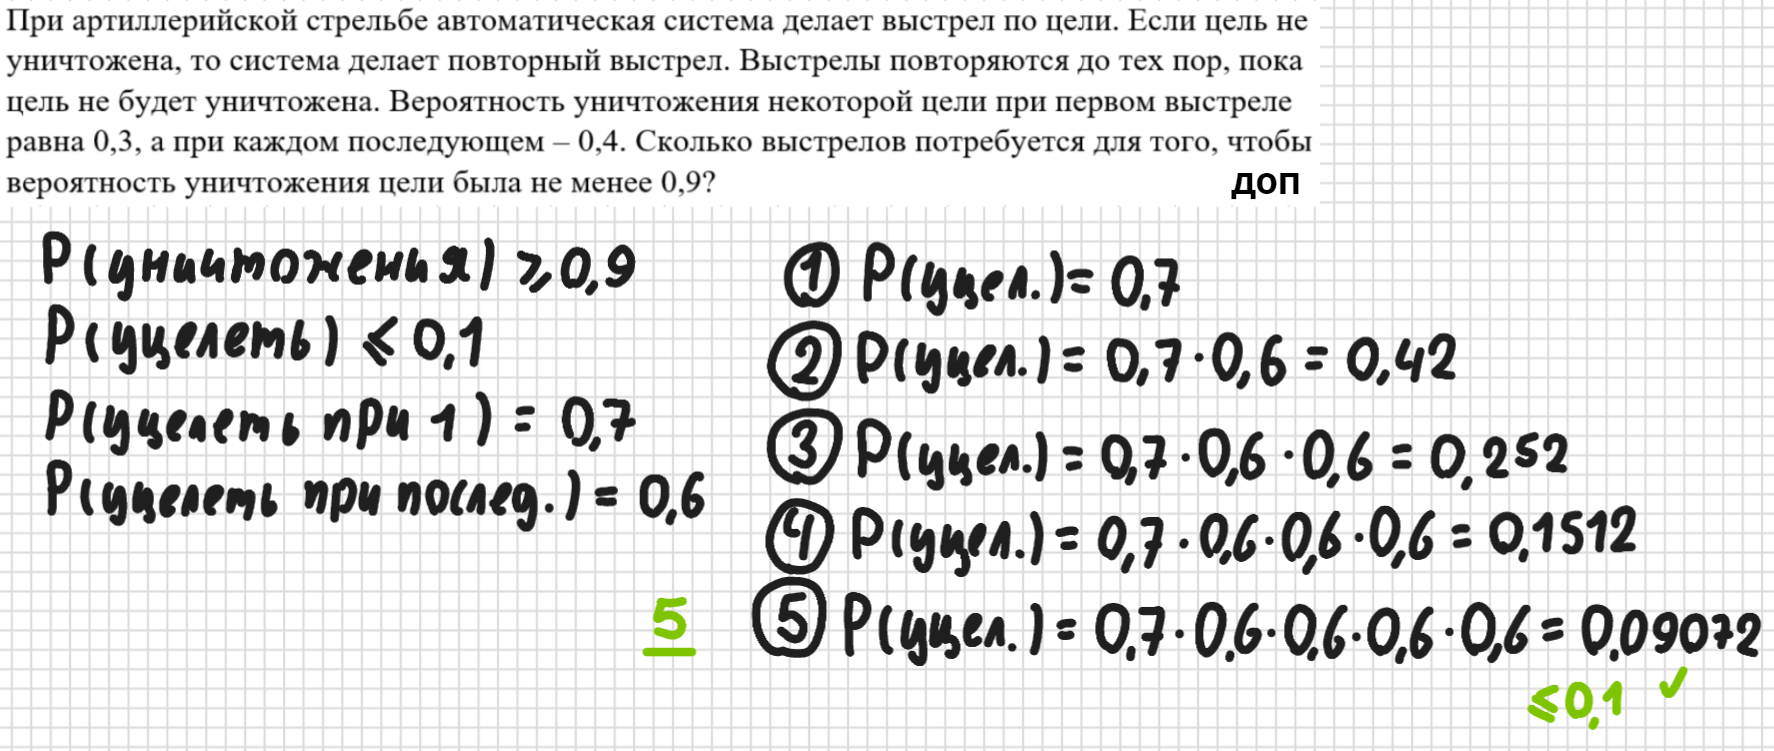 При артиллерийской стрельбе автоматическая система делает выстрел по цели. Если цель не
уничтожена, то система делает повторный выстрел. Выстрелы повторяются до тех пор, пока
цель не будет уничтожена. Вероятность уничтожения некоторой цели при первом выстреле
равна 0,3, а при каждом последующем – 0,4. Сколько выстрелов потребуется для того, чтобы
вероятность уничтожения цели была не менее 0,9?
доп
P(уничтожения) ⩾ 0,9
P(уцелеть) ⩽ 0,1
P(уцелеть при 1) = 0,7
P(уцелеть при послед.) = 0,6
① P(уцел.) = 0,7
② P(уцел.) = 0,7·0,6 = 0,42
③ P(уцел.) = 0,7·0,6·0,6 = 0,252
④ P(уцел.) = 0,7·0,6·0,6·0,6 = 0,1512
⑤ P(уцел.) = 0,7·0,6·0,6·0,6·0,6 = 0,09072
⩽0,1 ✓
5